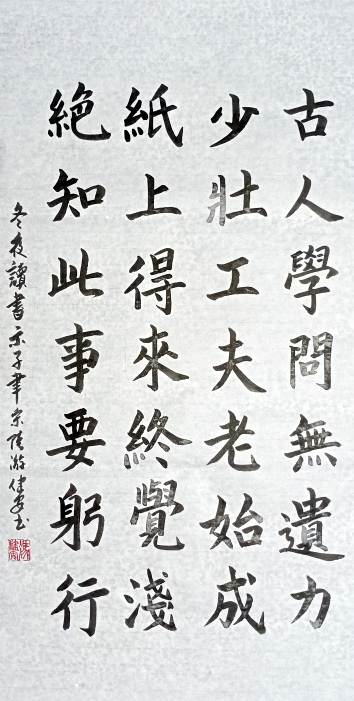 古人學問無遺力
少壯工夫老始成
紙上得來終覺淺
絕知此事要躬行
冬夜讀書示子聿 宋陸游 健安书